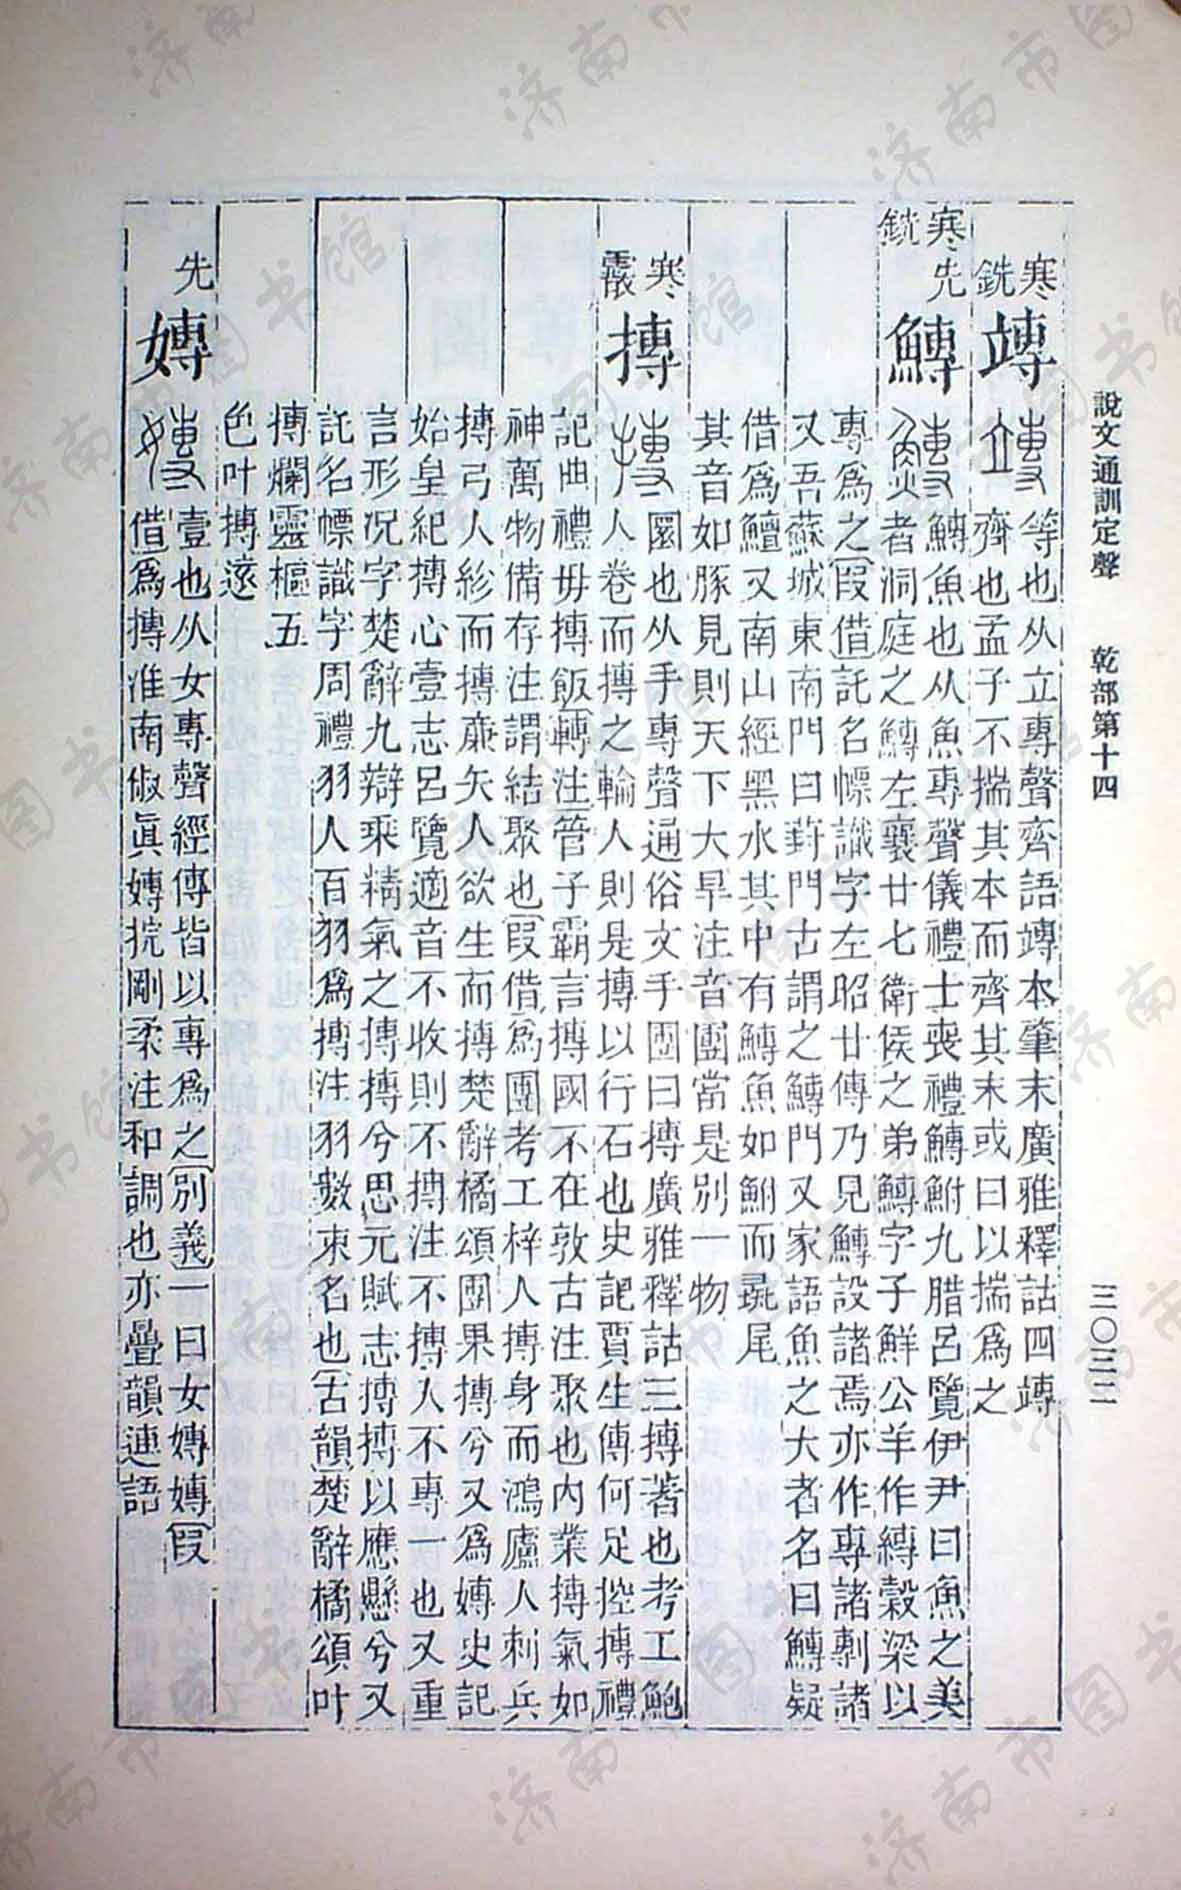 說文通訓定聲 乾部第十四 三〇三二
寒銑 竱 等也从立專聲齊語竱本肇末廣雅釋詁四竱
齊也孟子不揣其本而齊其末或曰以揣爲之
寒先銑 鱄 鱄魚也从魚專聲儀禮士喪禮鱄鮒九腊呂覽伊尹曰魚之美
者洞庭之鱄左襄廿七衛侯之弟鱄字子鮮公羊作縳穀梁以
專爲之假借託名幖識字左昭廿傳乃見鱄設諸焉亦作專諸剸諸
又吾蘇城東南門曰葑門古謂之鱄門又家語魚之大者名曰鱄疑
借爲鱣又南山經黑水其中有鱄魚如鮒而彘尾
其音如豚見則天下大旱注音團當是別一物
寒 摶 圜也从手專聲通俗文手團曰摶廣雅釋詁三摶著也考工鮑
人卷而摶之輪人則是摶以行石也史記賈生傳何足控摶禮
記曲禮毋摶飯轉注管子霸言摶國不在敦古注聚也內業摶氣如
神萬物備存注謂結聚也假借爲團考工梓人摶身而鴻廬人刺兵
摶弓人紾而摶廉矢人欲生而摶楚辭橘頌團果摶兮又爲嫥史記
始皇紀摶心壹志呂覽適音不收則不摶注不摶人不專一也又重
言形況字楚辭九辯乘精氣之摶摶兮思元賦志摶摶以應懸兮又
託名幖識字周禮羽人百羽爲摶注羽數束名也古韻楚辭橘頌叶
摶爛靈樞五
色叶摶遠
先 嫥 壹也从女專聲經傳皆以專爲之別義一曰女嫥嫥假
借爲摶淮南俶眞嫥捖剛柔注和調也亦疊韻連語
济南市图书馆